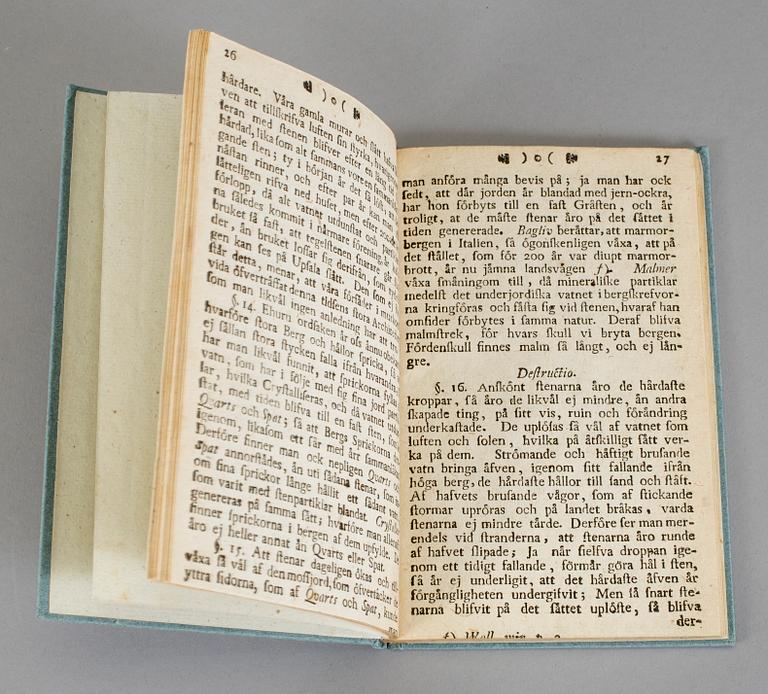 26
) o (
hårdare. Våra gamla murar och slått
ven att tillskrifva luften sin styrka,
feran med stenen blifver efter en lång
hårdad, likasom alt sammans vore en
gande sten; ty i början är det så
nåstan rinner, och efter par år kan
låtteligen rifva ned huset, men efter
förlopp, då alt vatnet utdunstat och
na således kommit i nårmare förening, är
bruket så fast, att tegelstenen snarare går
der, ån bruket lossar sig derifrån, som
gen kan ses på Upsala slått. Den som ej
står detta, menar, att våra förfåder i
vida öfvertråffat denna tidsens
som man likvål ingen anledning har att
§. 14. Ehuru ordsaken år ofs
hvarföre stora Berg och hållor spricka,
ej sållan stora stycken falla ifrån hvarandra,
har man likvål funnit, att sprickorna
vatn, som har i följe med sig fina jord
lar, hvilka Crystalliseras, och då vatnet
stat, med tiden blifva till en fast sten,
Quarts och Spat; så att Bergs Sprickorna
igenom, likasom ett sår med årr
Derföre finner man ock nepligen Quarts
Spat annorstådes, ån uti sådana stenar, som
om sina sprickor långe hållit ett sådant vatn
som varit med stenpartiklar blandat.
genereras på samma sått; hvarföre man
finner sprickorna i bergen af dem
åro ej heller annat ån Quarts eller Spat.
§. 15. Att stenar dageligen ökas och
våxa så vål af den mossjord, som öfvertåcker
yttra sidorna, som af Quarts och Spat,
man
) o (
27
man anföra många bevis på; ja man har ock
sedt, att dår jorden år blandad med jern-ockra,
har hon förbyts till en fast Gråsten, och år
troligt, at de måste stenar åro på det såttet i
tiden genererade. Bagliv beråttar, att marmor-
bergen i Italien, så ögonskenligen våxa, att på
det stållet, som för 200 år var diupt marmor-
brott, år nu jåmna landsvågen f). Malmer
våxa småningom till, då mineraliske partiklar
medelst det underjordiska vatnet i bergskrefvor-
na kringföras och fåsta sig vid stenen, hvaraf han
omsider förbytes i samma natur. Deraf blifva
malmstrek, för hvars skull vi bryta bergen.
Fördenskull finnes malm så långt, och ej lån-
gre.
Destructio.
§. 16. Anskönt stenarna åro de hårdaste
kroppar, så åro de likvål ej mindre, ån andra
skapade ting, på sitt vis, ruin och föråndring
underkastade. De uplösas så vål af vatnet som
luften och solen, hvilka på åtskilligt sått ver-
ka på dem. Strömande och håftigt brusande
vatn bringa åfven, igenom sitt fallande ifrån
höga berg, de hårdaste hållor till sand och ståft.
Af hafvets brusande vågor, som af stickande
stormar upröras och på landet bråkas, varda
stenarna ej mindre tårde. Derföre ser man mer-
endels vid stranderna, att stenarna åro runde
af hafvet slipade; Ja når sielfva droppan ige-
nom ett tidigt fallande, förmår göra hål i sten,
så år ej underligit, att det hårdaste åfven år
förgångligheten undergifvit; Men så snart ste-
narna blifvit på det såttet uplöste, så blifva
der-
f) Wall. min. p. 3